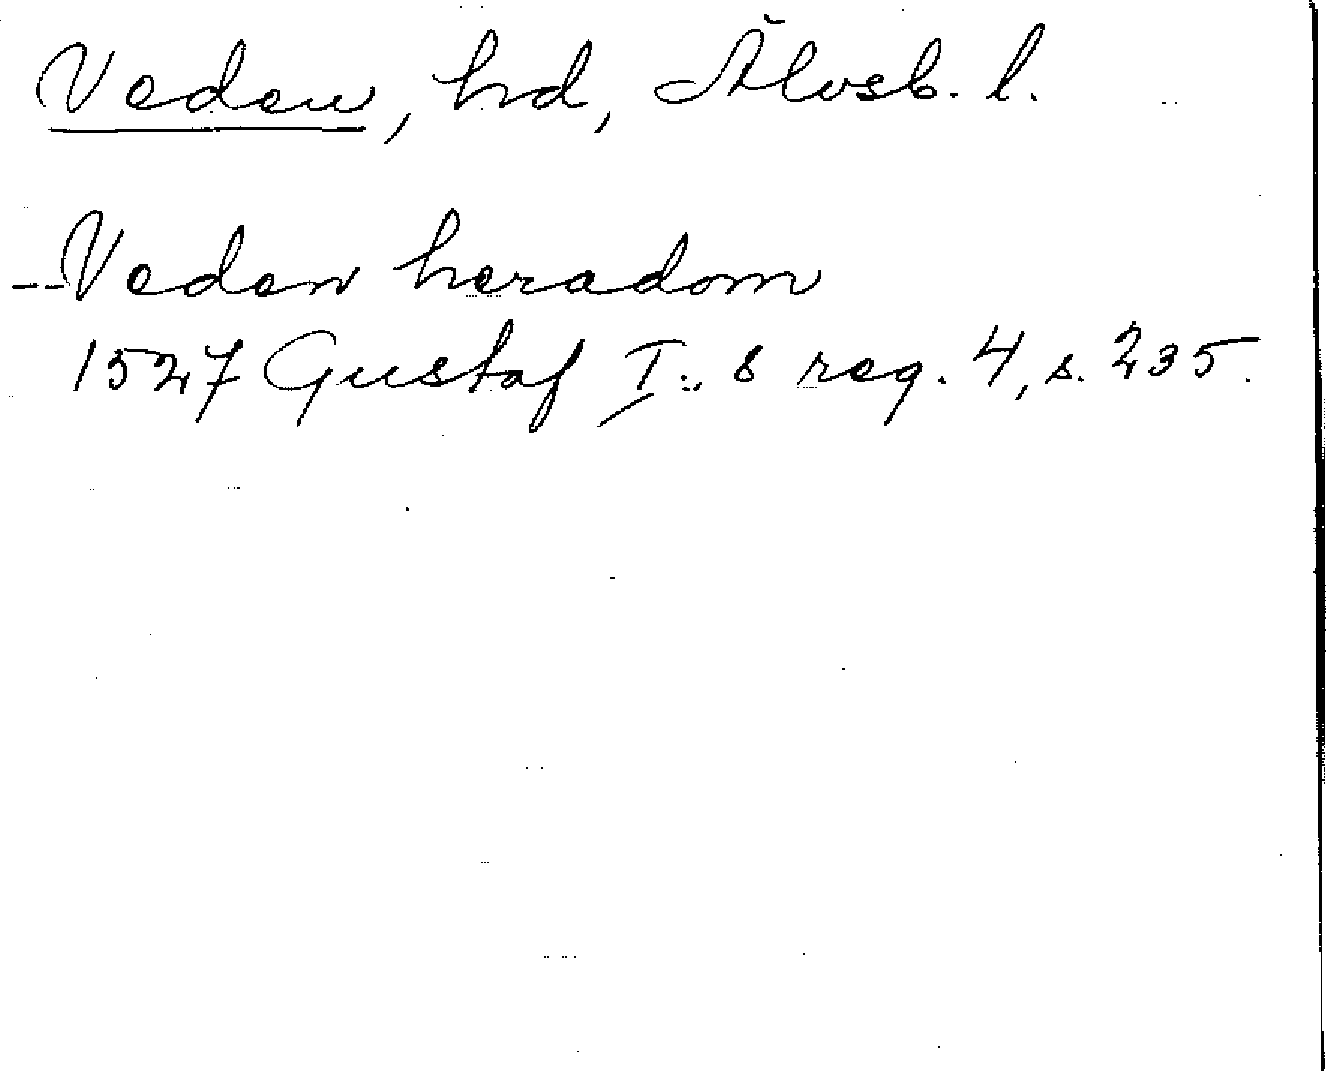 Veden, hd, Älvsb. l.
--Veden heradom
1527 Gustaf I:s reg. 4, s. 235.